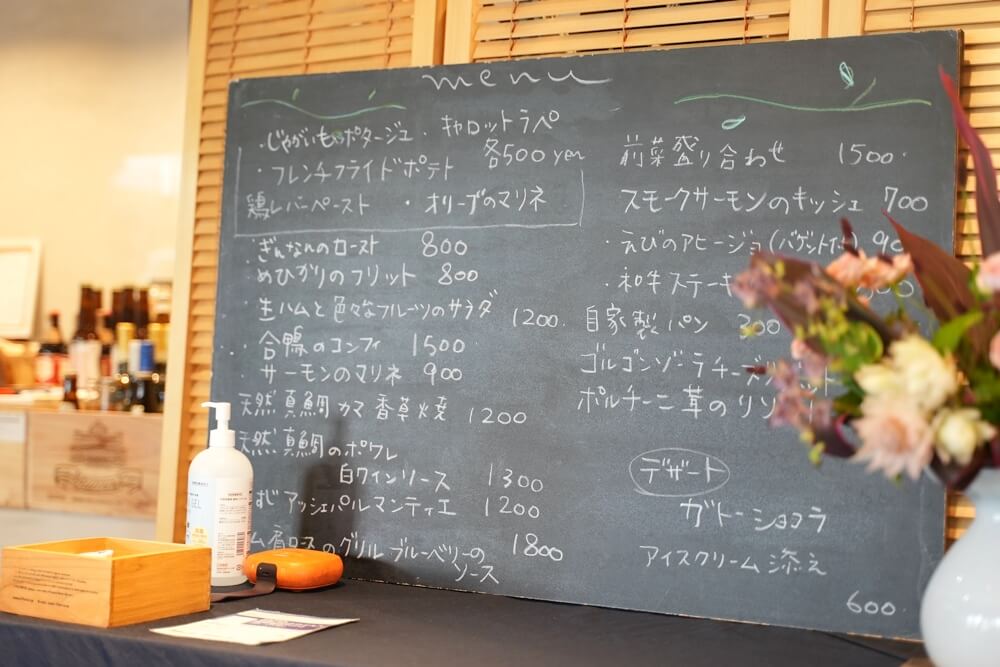 menu
・じゃがいものポタージュ ・キャロットラペ
・フレンチフライドポテト 各500yen
鶏レバーペースト ・オリーブのマリネ
・ぎんなんのロースト 800
・めひかりのフリット 800
・生ハムと色々なフルーツのサラダ 1200.
・合鴨のコンフィ 1500
・サーモンのマリネ 900
天然 真鯛 カマ 香草焼 1200
天然 真鯛のポワレ
白ワインソース 1300
すじ アッシェパルマンティエ 1200
肩ロースのグリル ブルーベリーの 1800
ソース
前菜盛り合わせ 1500.
スモークサーモンのキッシュ 700
・えびのアヒージョ(バゲット
・和牛ステーキ
自家製パン 300
ゴルゴンゾーラチーズ
ポルチーニ茸のリゾ
デザート
ガトーショコラ
アイスクリーム添え
600.
GEL